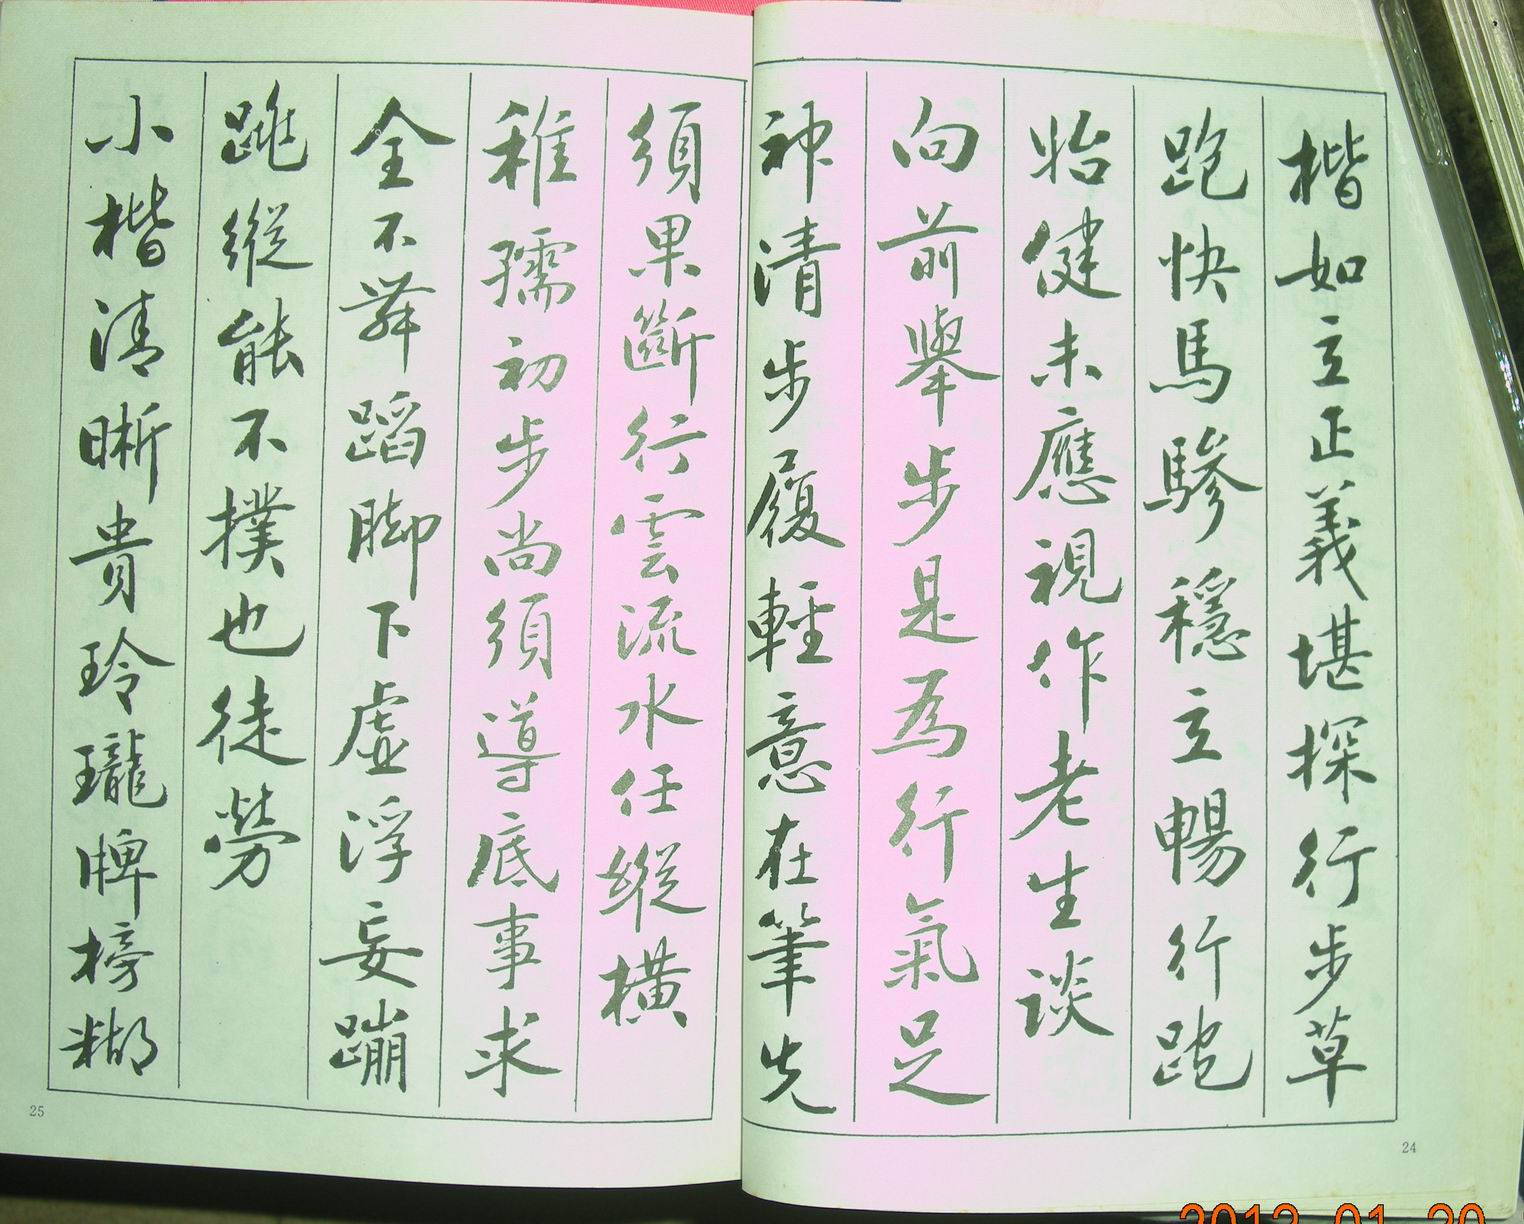 楷如立正義堪探行步草
跑快馬驂穩立暢行跑
始健未應視作老生談
向前舉步是為行氣足
神清步履輕意在筆先
須果斷行雲流水任縱橫
稚孺初步尚須導底事求
全不舞蹈脚下虛浮妄蹦
跳縱能不撲也徒勞
小楷清晰貴玲瓏牌榜糊
24
25
2012 01 20